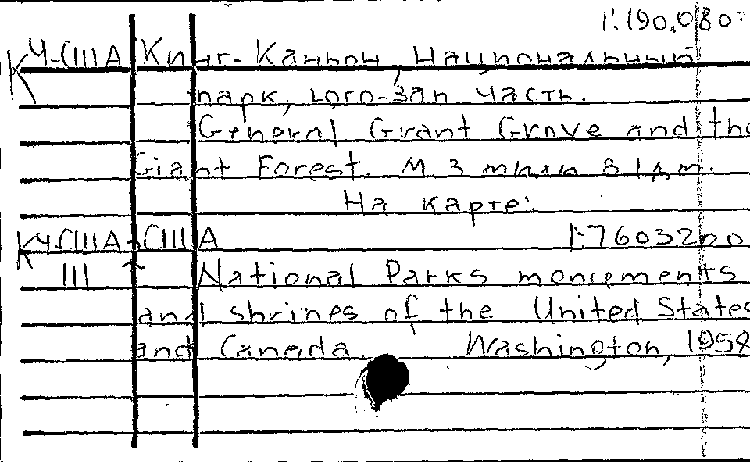 1:190,080
К Ч-СШАКинг-Каньон, Национальный
парк, юго-зап часть.
General Grant Grove and the
Giant Forest. М. 3 мили в 1 дм.
На карте:
КЧ-СШАСША 1:7603200
III National Parks monuments
and shrines of the United States
and Canada. Washington, 1958